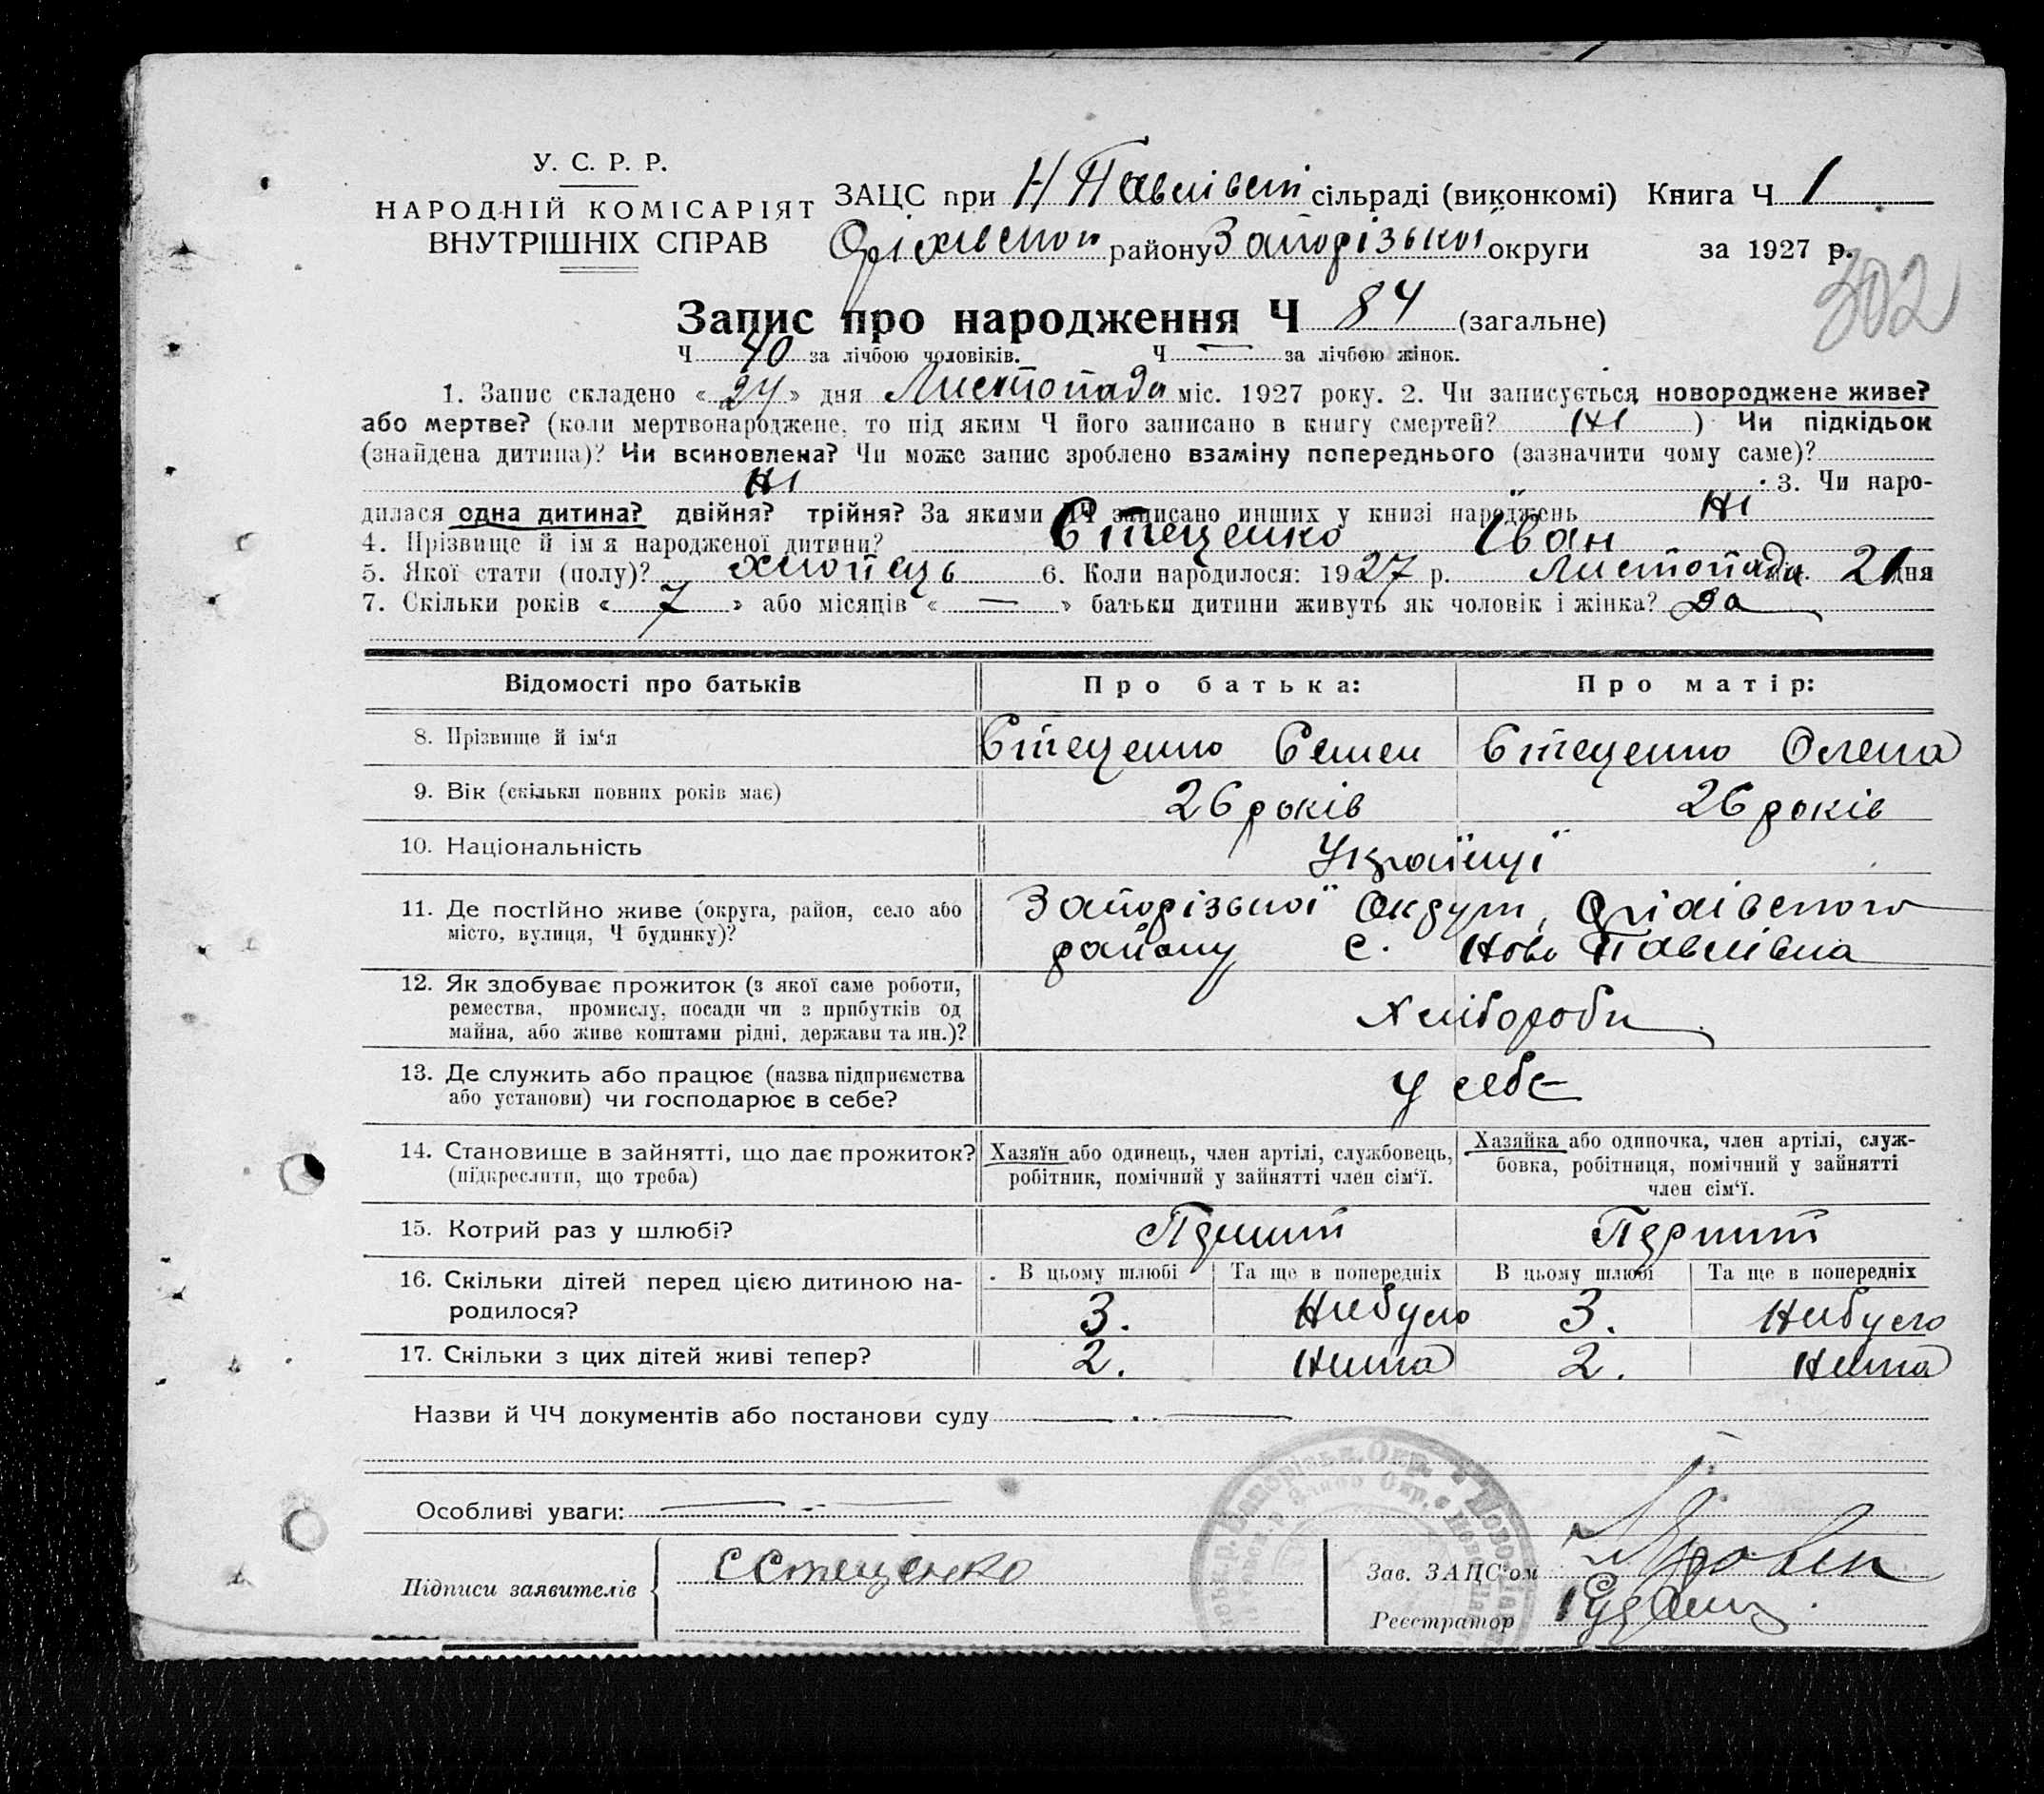 У. С. Р. Р.
НАРОДНІЙ КОМІСАРІЯТ
ВНУТРІШНІХ СПРАВ
ЗАЦС при Н Павлівській сільраді (виконкомі) Книга Ч 1
Оріхівського району Запорізької округи за 1927 р.
302
Запис про народження Ч 84 (загальне)
Ч 40 за лічбою чоловіків. Ч — за лічбою жінок.
1. Запис складено « 24 » дня Листопада міс. 1927 року. 2. Чи записується новороджене живе?
або мертве? (коли мертвонароджене, то під яким Ч його записано в книгу смертей? Ні ) Чи підкідьок
(знайдена дитина)? Чи всиновлена? Чи може запис зроблено взаміну попереднього (зазначити чому саме)?
Ні 3. Чи наро-
дилася одна дитина? двійня? трійня? За якими ЧЧ записано инших у книзі народжень Ні
4. Прізвище й ім'я народженої дитини? Стеценко Іван
5. Якої стати (полу)? хлопець 6. Коли народилося: 1927 р. Листопада міс. 21 дня
7. Скільки років « 7 » або місяців « — » батьки дитини живуть як чоловік і жінка? Да
Відомості про батьків Про батька: Про матір:
8. Прізвище й ім'я Стеценко Семен Стеценко Олена
9. Вік (скільки повних років має) 26 років 26 років
10. Національність Українці
11. Де постійно живе (округа, район, село або Запорізької Округи, Оріхівського
місто, вулиця, Ч будинку)? району с. Ново Павлівка
12. Як здобуває прожиток (з якої саме роботи,
ремества, промислу, посади чи з прибутків од
майна, або живе коштами рідні, держави та ин.)? Хлібороби
13. Де служить або працює (назва підприємства
або установи) чи господарює в себе? у себе
14. Становище в зайнятті, що дає прожиток?
(підкреслити, що треба)
Хазяїн або одинець, член артілі, службовець,
робітник, помічний у зайнятті член сім'ї.
Хазяйка або одиночка, член артілі, служ-
бовка, робітниця, помічний у зайнятті
член сім'ї.
15. Котрий раз у шлюбі? Перший Перший
16. Скільки дітей перед цією дитиною на-
родилося?
В цьому шлюбі Та ще в попередніх В цьому шлюбі Та ще в попередніх
3. Небуло 3. Небуло
17. Скільки з цих дітей живі тепер? 2. Нема 2. Нема
Назви й ЧЧ документів або постанови суду — . —
Особливі уваги: — - —
Підписи заявителів ССтеценко
Зав. ЗАЦС'ом
Реєстратор